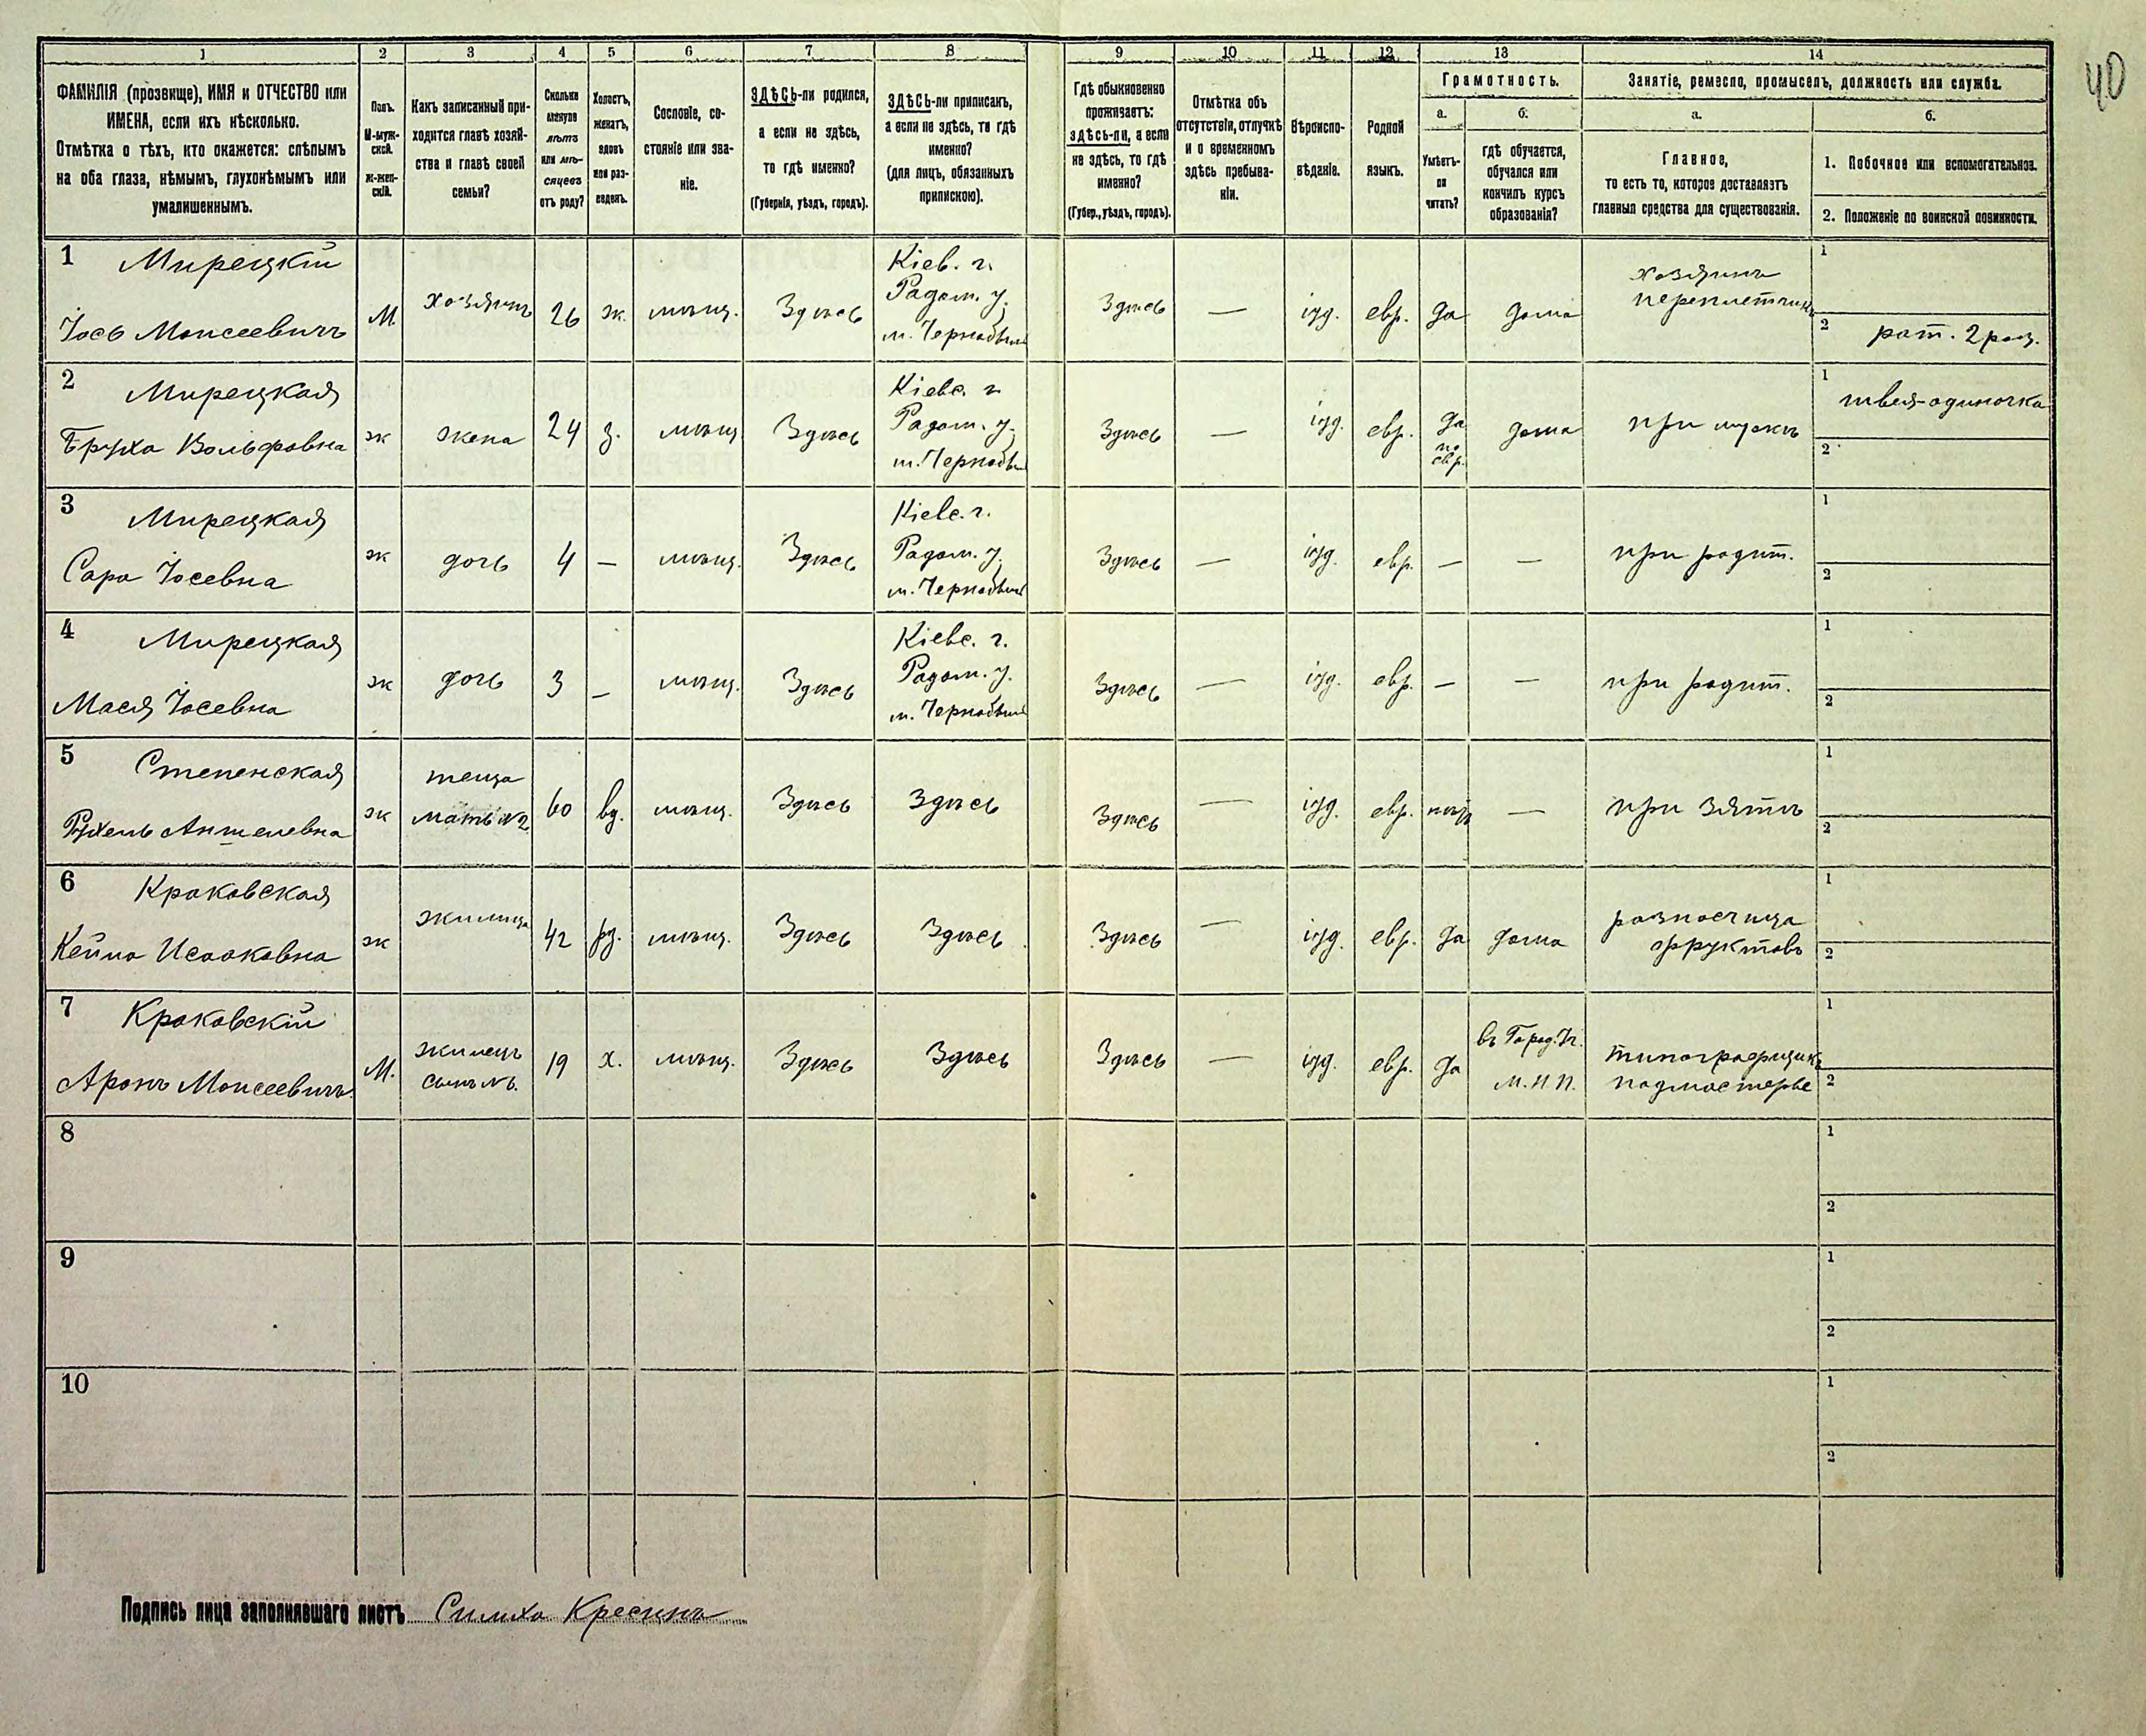 40
1 2 3 4 5 6 7 8 9 10 11 12 13 14
ФАМИЛІЯ (прозвище), ИМЯ и ОТЧЕСТВО или
ИМЕНА, если ихъ нѣсколько.
Отмѣтка о тѣхъ, кто окажется: слѣпымъ
на оба глаза, нѣмымъ, глухонѣмымъ или
умалишеннымъ.
Полъ.
М-муж-
ской.
ж-жен-
скій.
Какъ записанный при-
ходится главѣ хозяй-
ства и главѣ своей
семьи?
Сколько
минуло
лѣтъ
или мѣ-
сяцевъ
отъ роду?
Холостъ,
женатъ,
вдовъ
или раз-
веденъ.
Сословіе, со-
стояніе или зва-
ніе.
ЗДѢСЬ-ли родился,
а если не здѣсь,
то гдѣ именно?
(Губернія, уѣздъ, городъ).
ЗДѢСЬ-ли приписанъ,
а если не здѣсь, то гдѣ
именно?
(для лицъ, обязанныхъ
припискою).
Гдѣ обыкновенно
проживаетъ:
здѣсь-ли, а если
не здѣсь, то гдѣ
именно?
(Губер., уѣздъ, городъ).
Отмѣтка объ
отсутствіи, отлучкѣ
и о временномъ
здѣсь пребыва-
ніи.
Вѣроиспо-
вѣданіе.
Родной
языкъ.
Грамотность.
а.
Умѣетъ-
ли
читать?
б.
гдѣ обучается,
обучался или
кончилъ курсъ
образованія?
Занятіе, ремесло, промыселъ, должность или служба.
а.
Главное,
то есть то, которое доставляетъ
главныя средства для существованія.
б.
1. Побочное или вспомогательное.
2. Положеніе по воинской повинности.
1 Мирецкій
Іось Моисеевичъ
М.
хозяинъ
26
ж.
мѣщ.
Здѣсь
Кіев. г.
Радом. у.
м. Чернобыль
Здѣсь
—
іуд.
евр.
да
дома
хозяинъ
переплетчикъ
1
2 рат. 2 раз.
2 Мирецкая
Бруха Вольфовна
ж
жена
24
з.
мѣщ
Здѣсь
Кіевс. г.
Радом. у.
м. Чернобыль
Здѣсь
—
іуд.
евр.
да
по
евр.
дома
при мужѣ
1 швея-одиночка
2
3 Мирецкая
Сара Іосевна
ж
дочь
4
—
мѣщ.
Здѣсь
Кіевс. г.
Радом. у.
м. Чернобыль
Здѣсь
—
іуд.
евр.
—
—
при родит.
1
2
4 Мирецкая
Мася Іосевна
ж
дочь
3
—
мѣщ.
Здѣсь
Кіевс. г.
Радом. у.
м. Чернобыль
Здѣсь
—
іуд.
евр.
—
—
при родит.
1
2
5 Степенская
Рухель Аншелевна
ж
теща
мать №2
60
вд.
мѣщ.
Здѣсь
Здѣсь
Здѣсь
—
іуд.
евр.
нѣтъ
—
при зятѣ
1
2
6 Краковская
Кейла Исааковна
ж
жилица
42
рз.
мѣщ.
Здѣсь
Здѣсь
Здѣсь
—
іуд.
евр.
да
дома
разносчица
фруктовъ
1
2
7 Краковскій
Аронъ Моисеевичъ
М.
жилецъ
сынъ №6.
19
х.
мѣщ.
Здѣсь
Здѣсь
Здѣсь
—
іуд.
евр.
да
въ Город.
М.Н.П.
типографщикъ
подмастерье
1
2
8
1
2
9
1
2
10
1
2
Подпись лица заполнявшаго листъ Симха Кресинъ